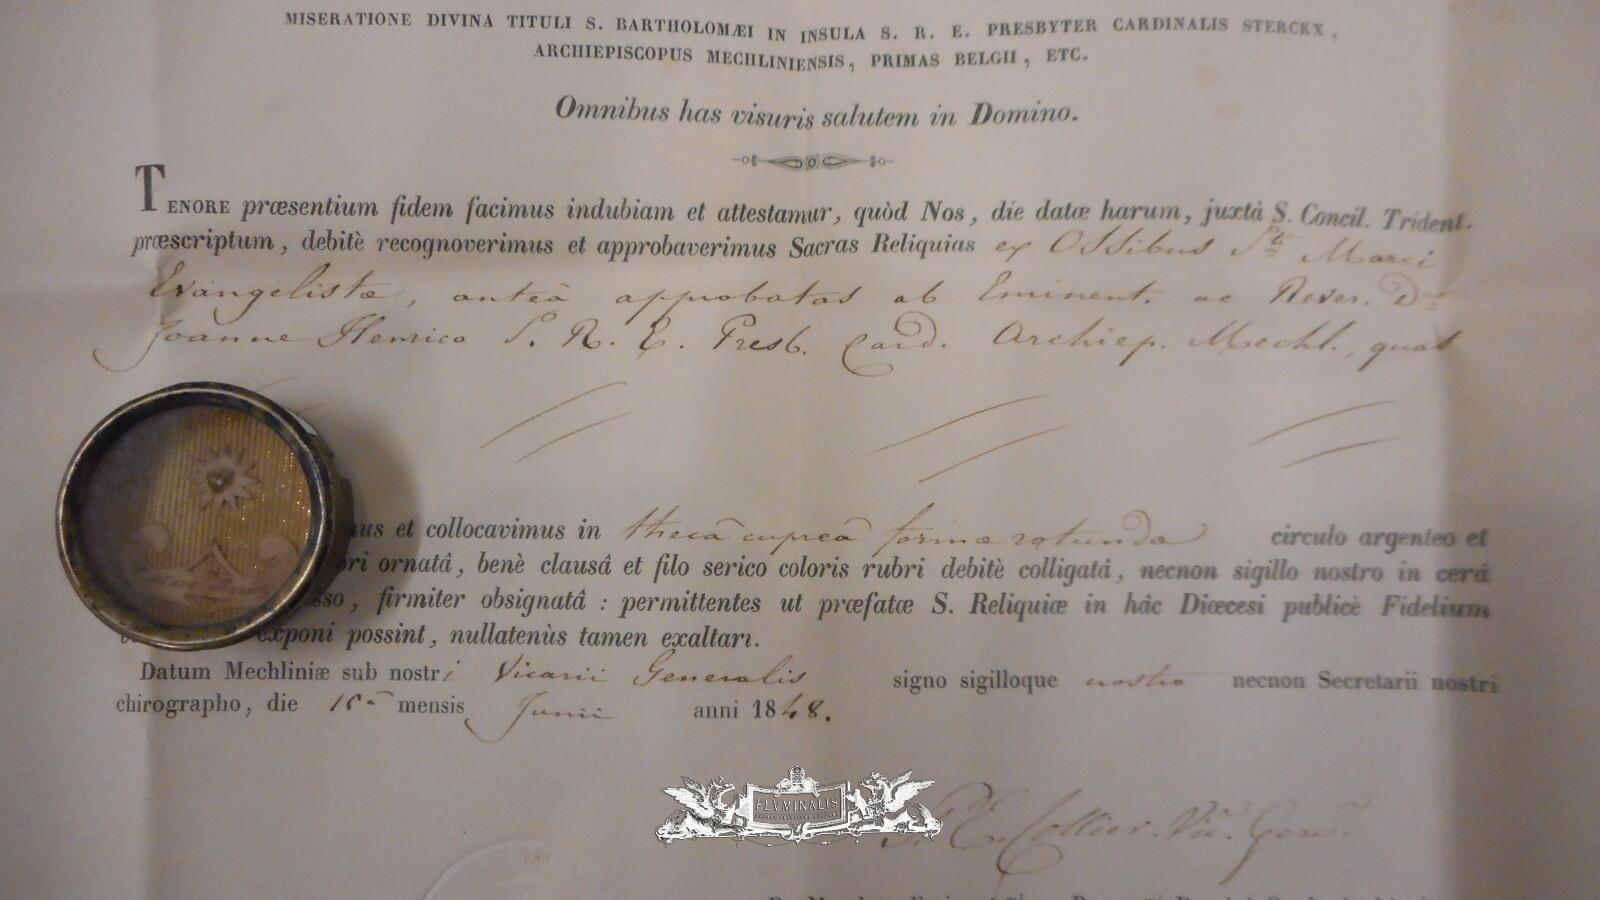 MISERATIONE DIVINA TITULI S. BARTHOLOMÆI IN INSULA S. R. E. PRESBYTER CARDINALIS STERCKX,
ARCHIEPISCOPUS MECHLINIENSIS, PRIMAS BELGII, ETC.
Omnibus has visuris salutem in Domino.
TENORE præsentium fidem facimus indubiam et attestamur, quòd Nos, die datæ harum, juxtà S. Concil. Trident.
præscriptum, debitè recognoverimus et approbaverimus Sacras Reliquias ex Ossibus Sti Marci
Evangelistæ, anteà approbatas ab Eminent. ac Rever. Dno
Joanne Henrico S. R. E. Presb. Card. Archiep. Mechl., quas
et collocavimus in thecâ cupreâ formæ rotundæ circulo argenteo et
ornatâ, benè clausâ et filo serico coloris rubri debitè colligatâ, necnon sigillo nostro in cerâ
firmiter obsignatâ : permittentes ut præfatæ S. Reliquiæ in hâc Diœcesi publicè Fidelium
exponi possint, nullatenùs tamen exaltari.
Datum Mechliniæ sub nostri Vicarii Generalis signo sigilloque nostro necnon Secretarii nostri
chirographo, die mensis Junii anni 1848.
FLVMINALIS
Collier. Vic. Gen.